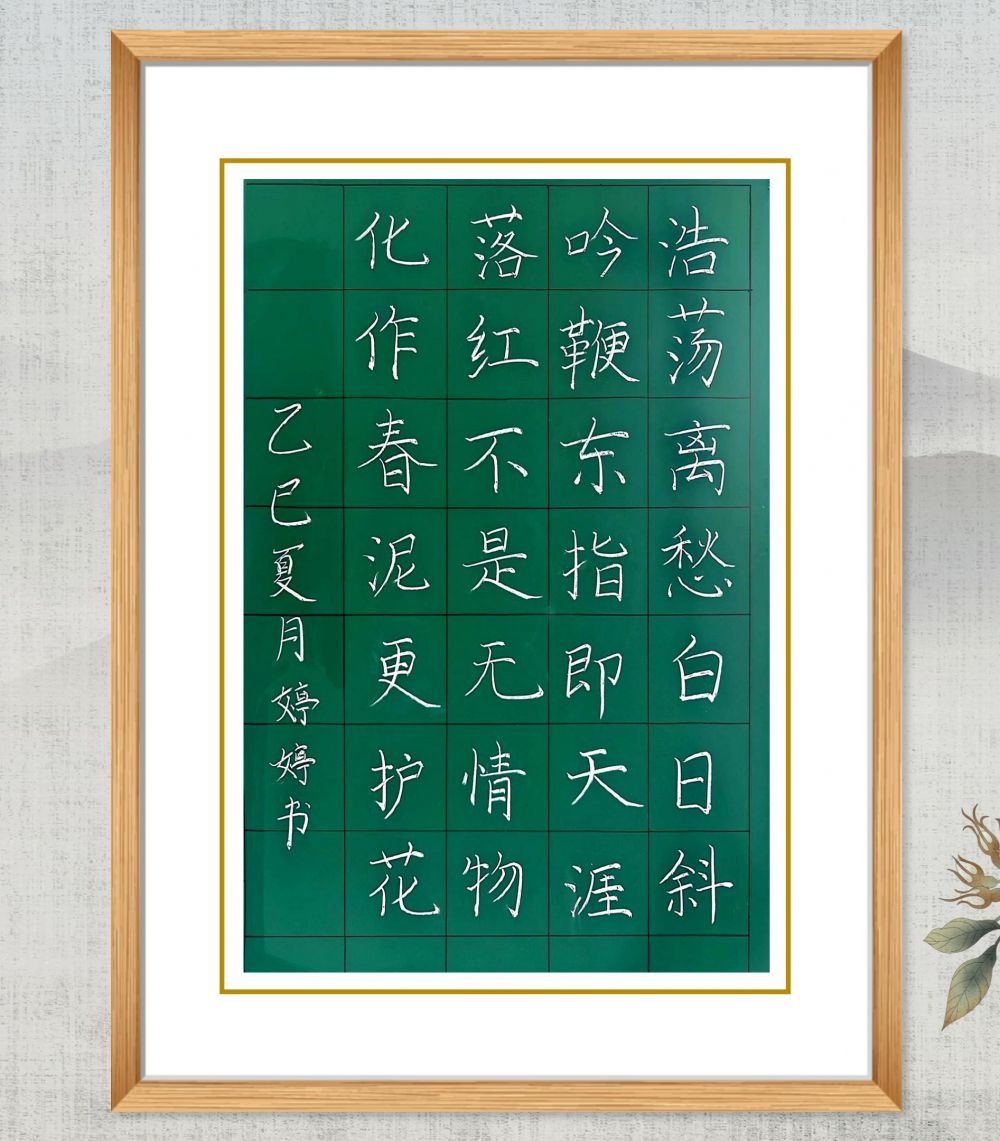 浩荡离愁白日斜
吟鞭东指即天涯
落红不是无情物
化作春泥更护花
乙巳夏月婷婷书